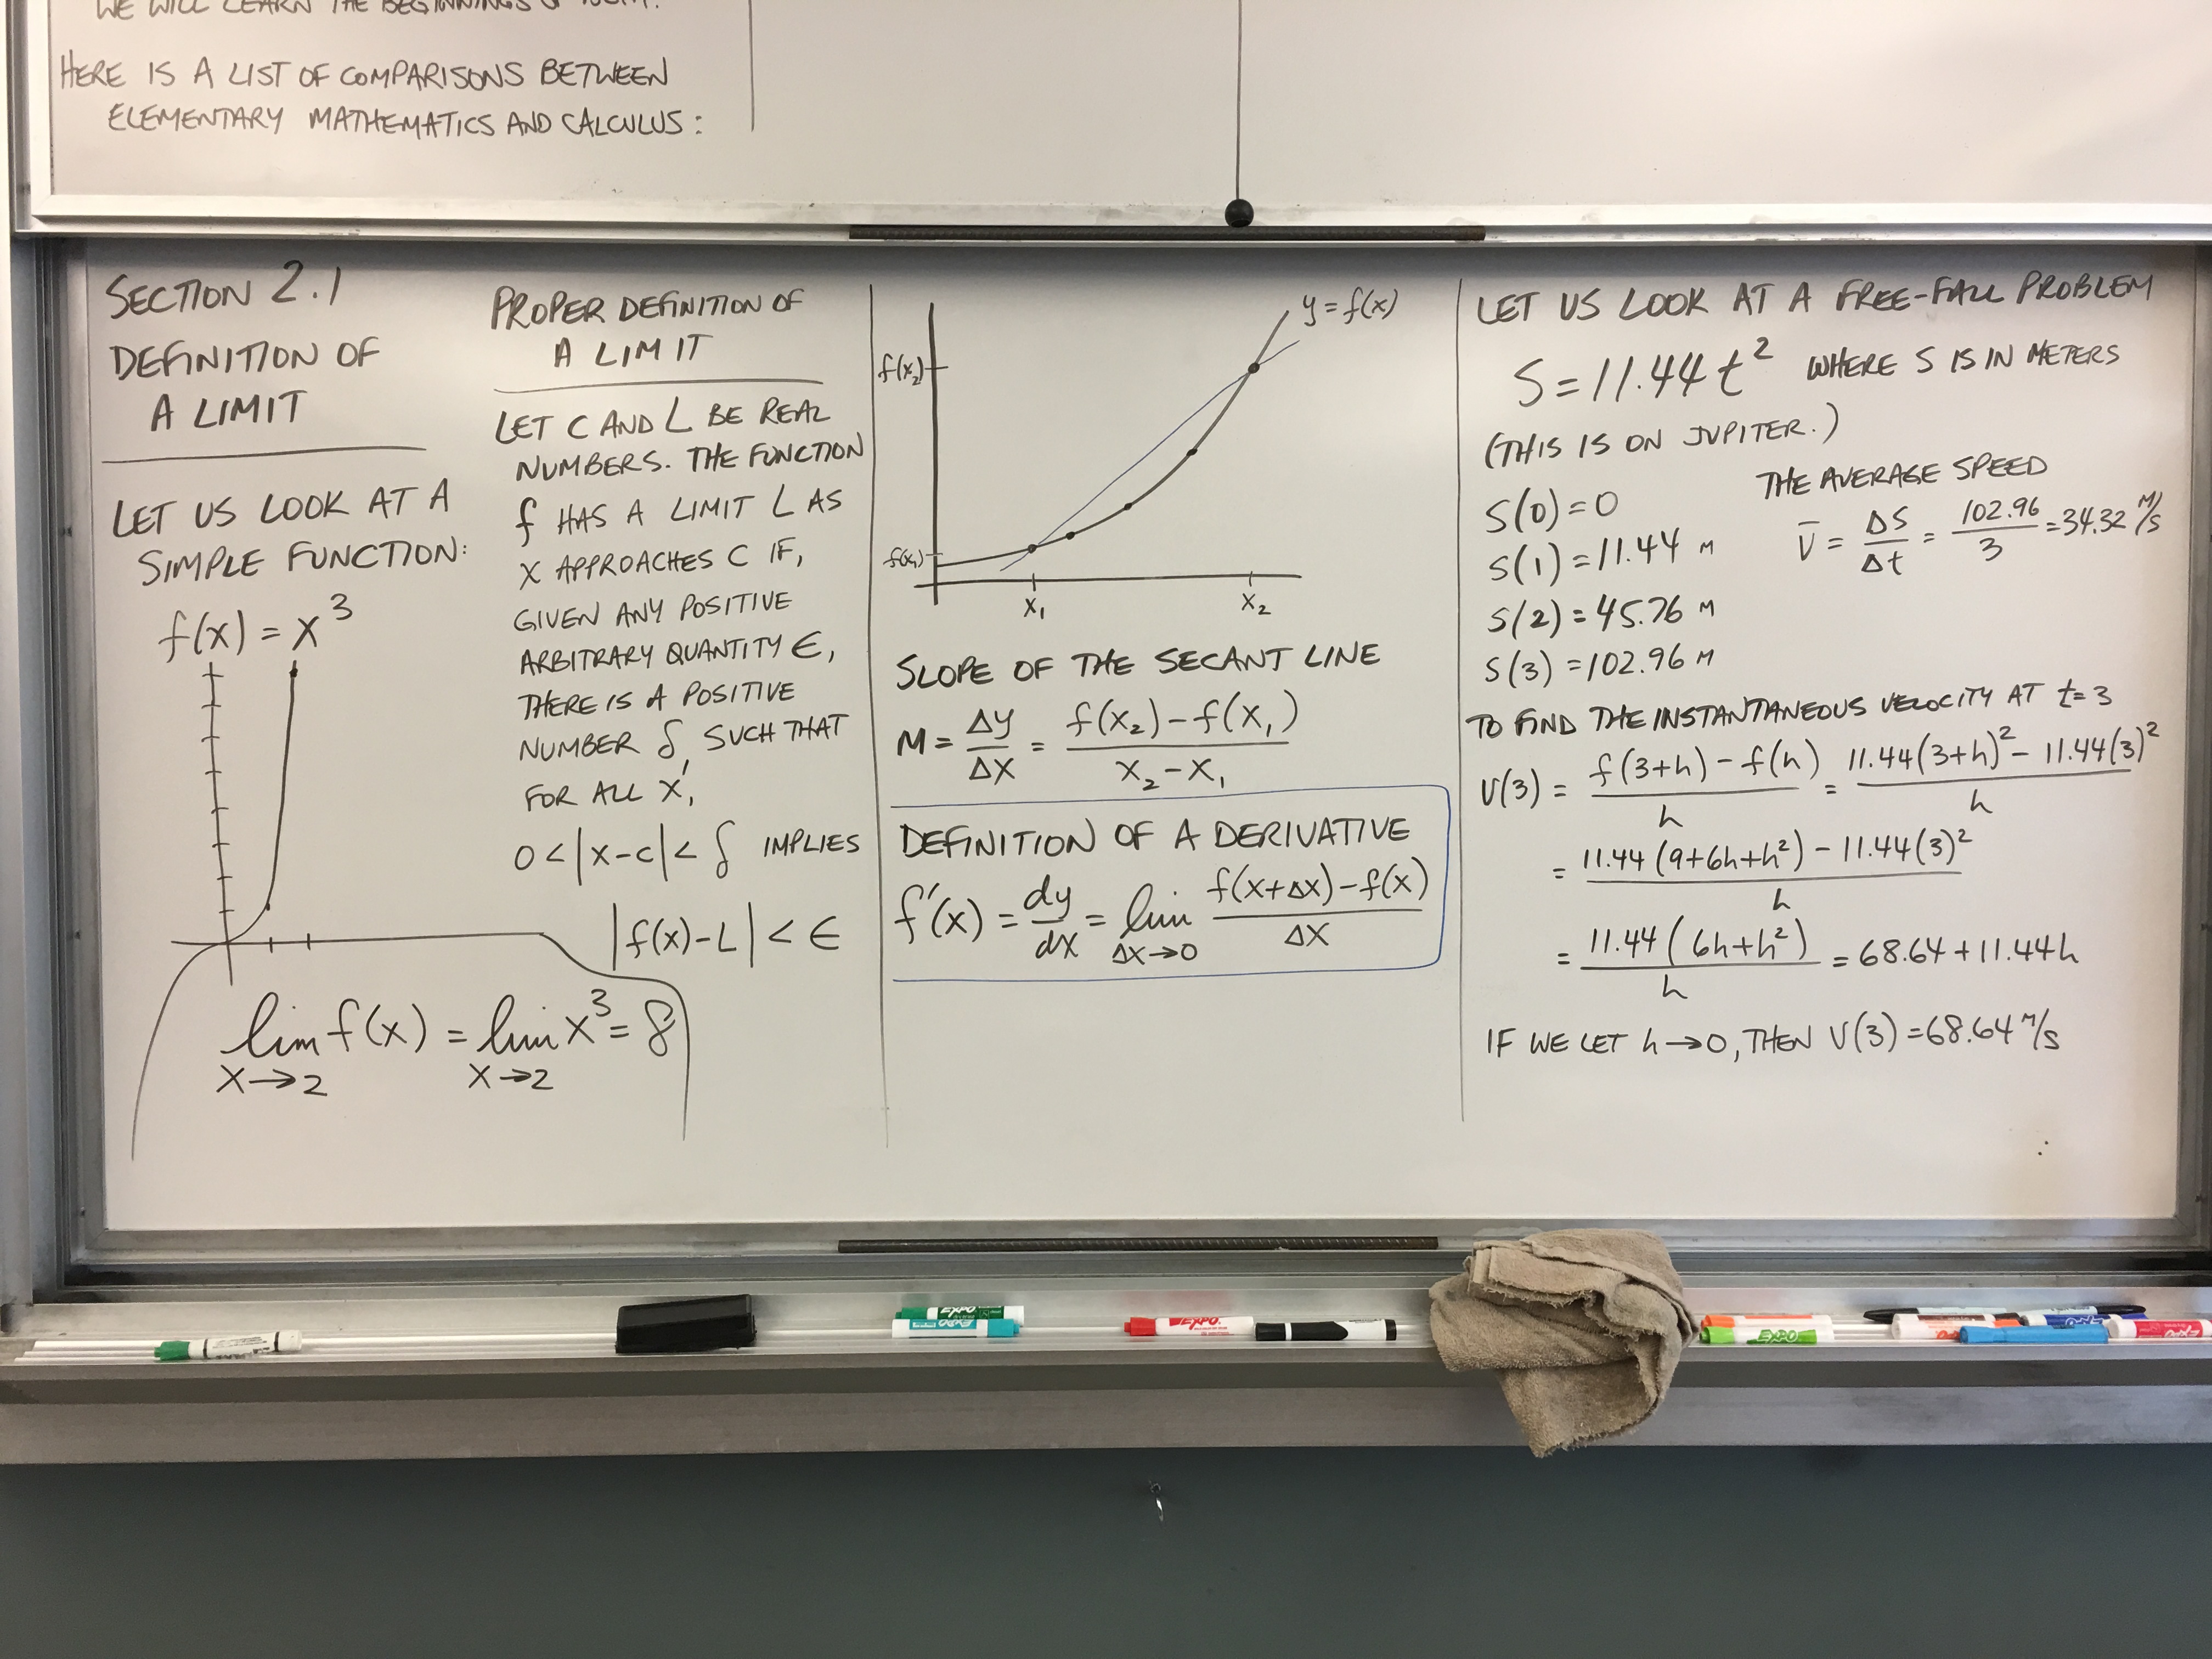 WE WILL LEARN THE BEGINNINGS OF
HERE IS A LIST OF COMPARISONS BETWEEN
ELEMENTARY MATHEMATICS AND CALCULUS:
SECTION 2.1
DEFINITION OF
A LIMIT
LET US LOOK AT A
SIMPLE FUNCTION:
f(x) = x³
lim f(x) = lim x³ = 8
x→2 x→2
PROPER DEFINITION OF
A LIMIT
LET C AND L BE REAL
NUMBERS. THE FUNCTION
f HAS A LIMIT L AS
X APPROACHES C IF,
GIVEN ANY POSITIVE
ARBITRARY QUANTITY ∈,
THERE IS A POSITIVE
NUMBER δ, SUCH THAT
FOR ALL X,
0 < |x-c| < δ IMPLIES
|f(x)-L| < ∈
y = f(x)
f(x₂)
f(x₁)
x₁ x₂
SLOPE OF THE SECANT LINE
M = Δy/Δx = (f(x₂) - f(x₁))/(x₂ - x₁)
DEFINITION OF A DERIVATIVE
f'(x) = dy/dx = lim (f(x+Δx) - f(x))/Δx
Δx→0
LET US LOOK AT A FREE-FALL PROBLEM
S = 11.44 t² WHERE S IS IN METERS
(THIS IS ON JUPITER.)
S(0) = 0
S(1) = 11.44 M
S(2) = 45.76 M
S(3) = 102.96 M
THE AVERAGE SPEED
v̄ = ΔS/Δt = 102.96/3 = 34.32 M/S
TO FIND THE INSTANTANEOUS VELOCITY AT t=3
V(3) = (f(3+h) - f(h))/h = (11.44(3+h)² - 11.44(3)²)/h
= (11.44(9+6h+h²) - 11.44(3)²)/h
= (11.44(6h+h²))/h = 68.64 + 11.44h
IF WE LET h→0, THEN V(3) = 68.64 M/S
EXPO
EXPO
EXPO
EXPO
EXPO
EXPO